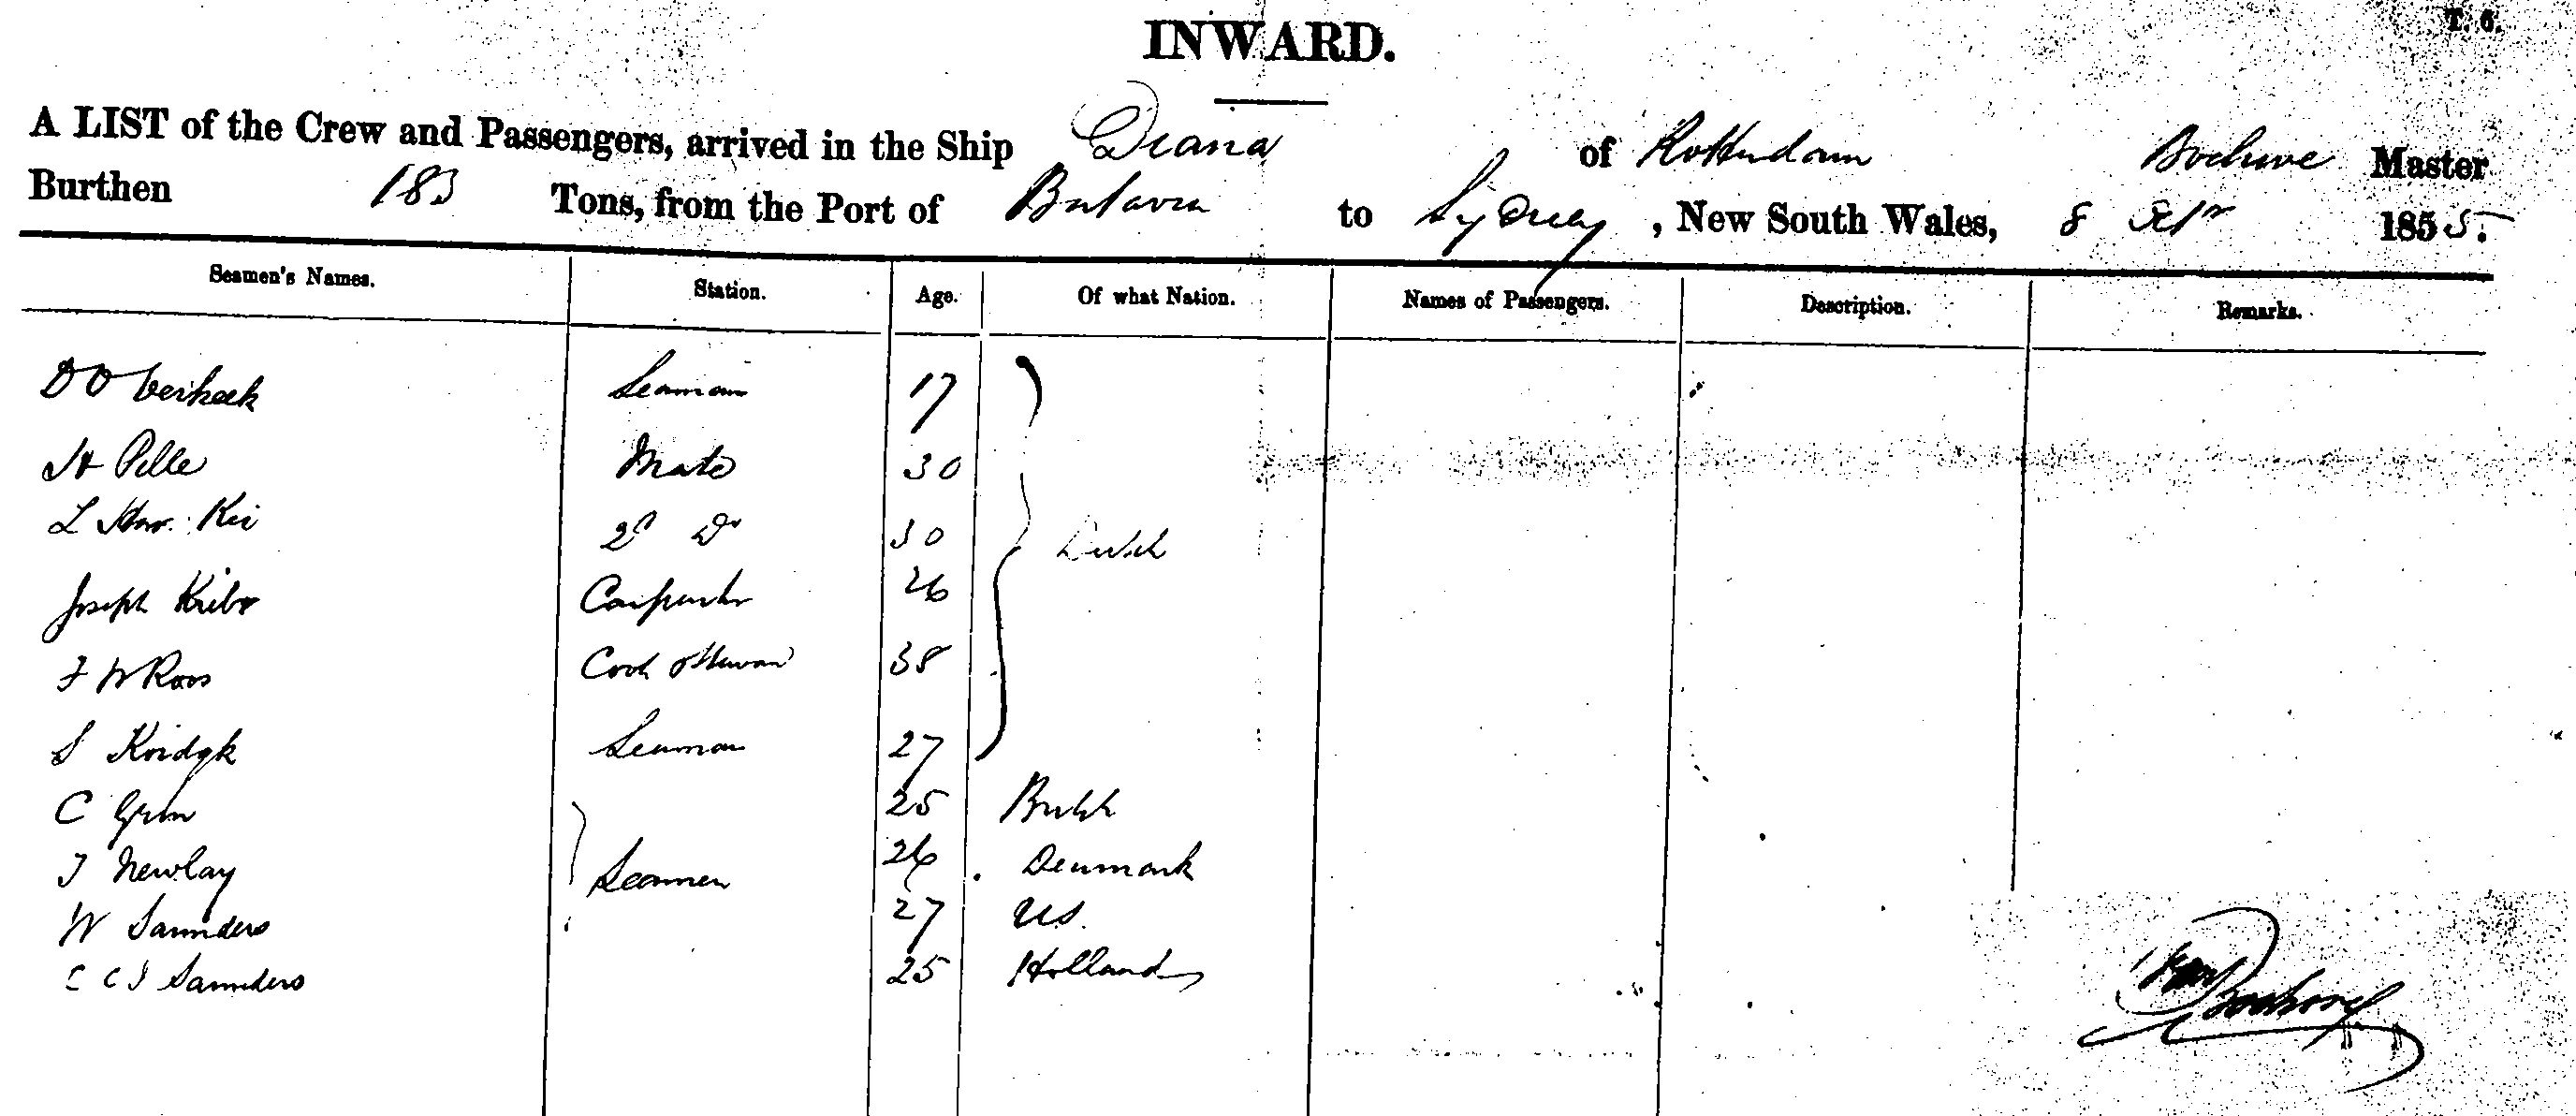 T. 6.
INWARD.
A LIST of the Crew and Passengers, arrived in the Ship Diana of Rotterdam Bochove Master
Burthen 183 Tons, from the Port of Batavia to Sydney, New South Wales, 8 1855.
Seamen's Names. Station. Age. Of what Nation. Names of Passengers. Description. Remarks.
D O Verheek Seaman 17
H Pelle Mate 30
L Kei 2d Do 30 Dutch
Joseph Carpenter 26
F W Roos Cook & Steward 38
S Koidyk Seaman 27
C Grim 25 British
J Newlay Seamen 26 Denmark
W Saunders 27 US.
C C J Saunders 25 Holland
Bochove